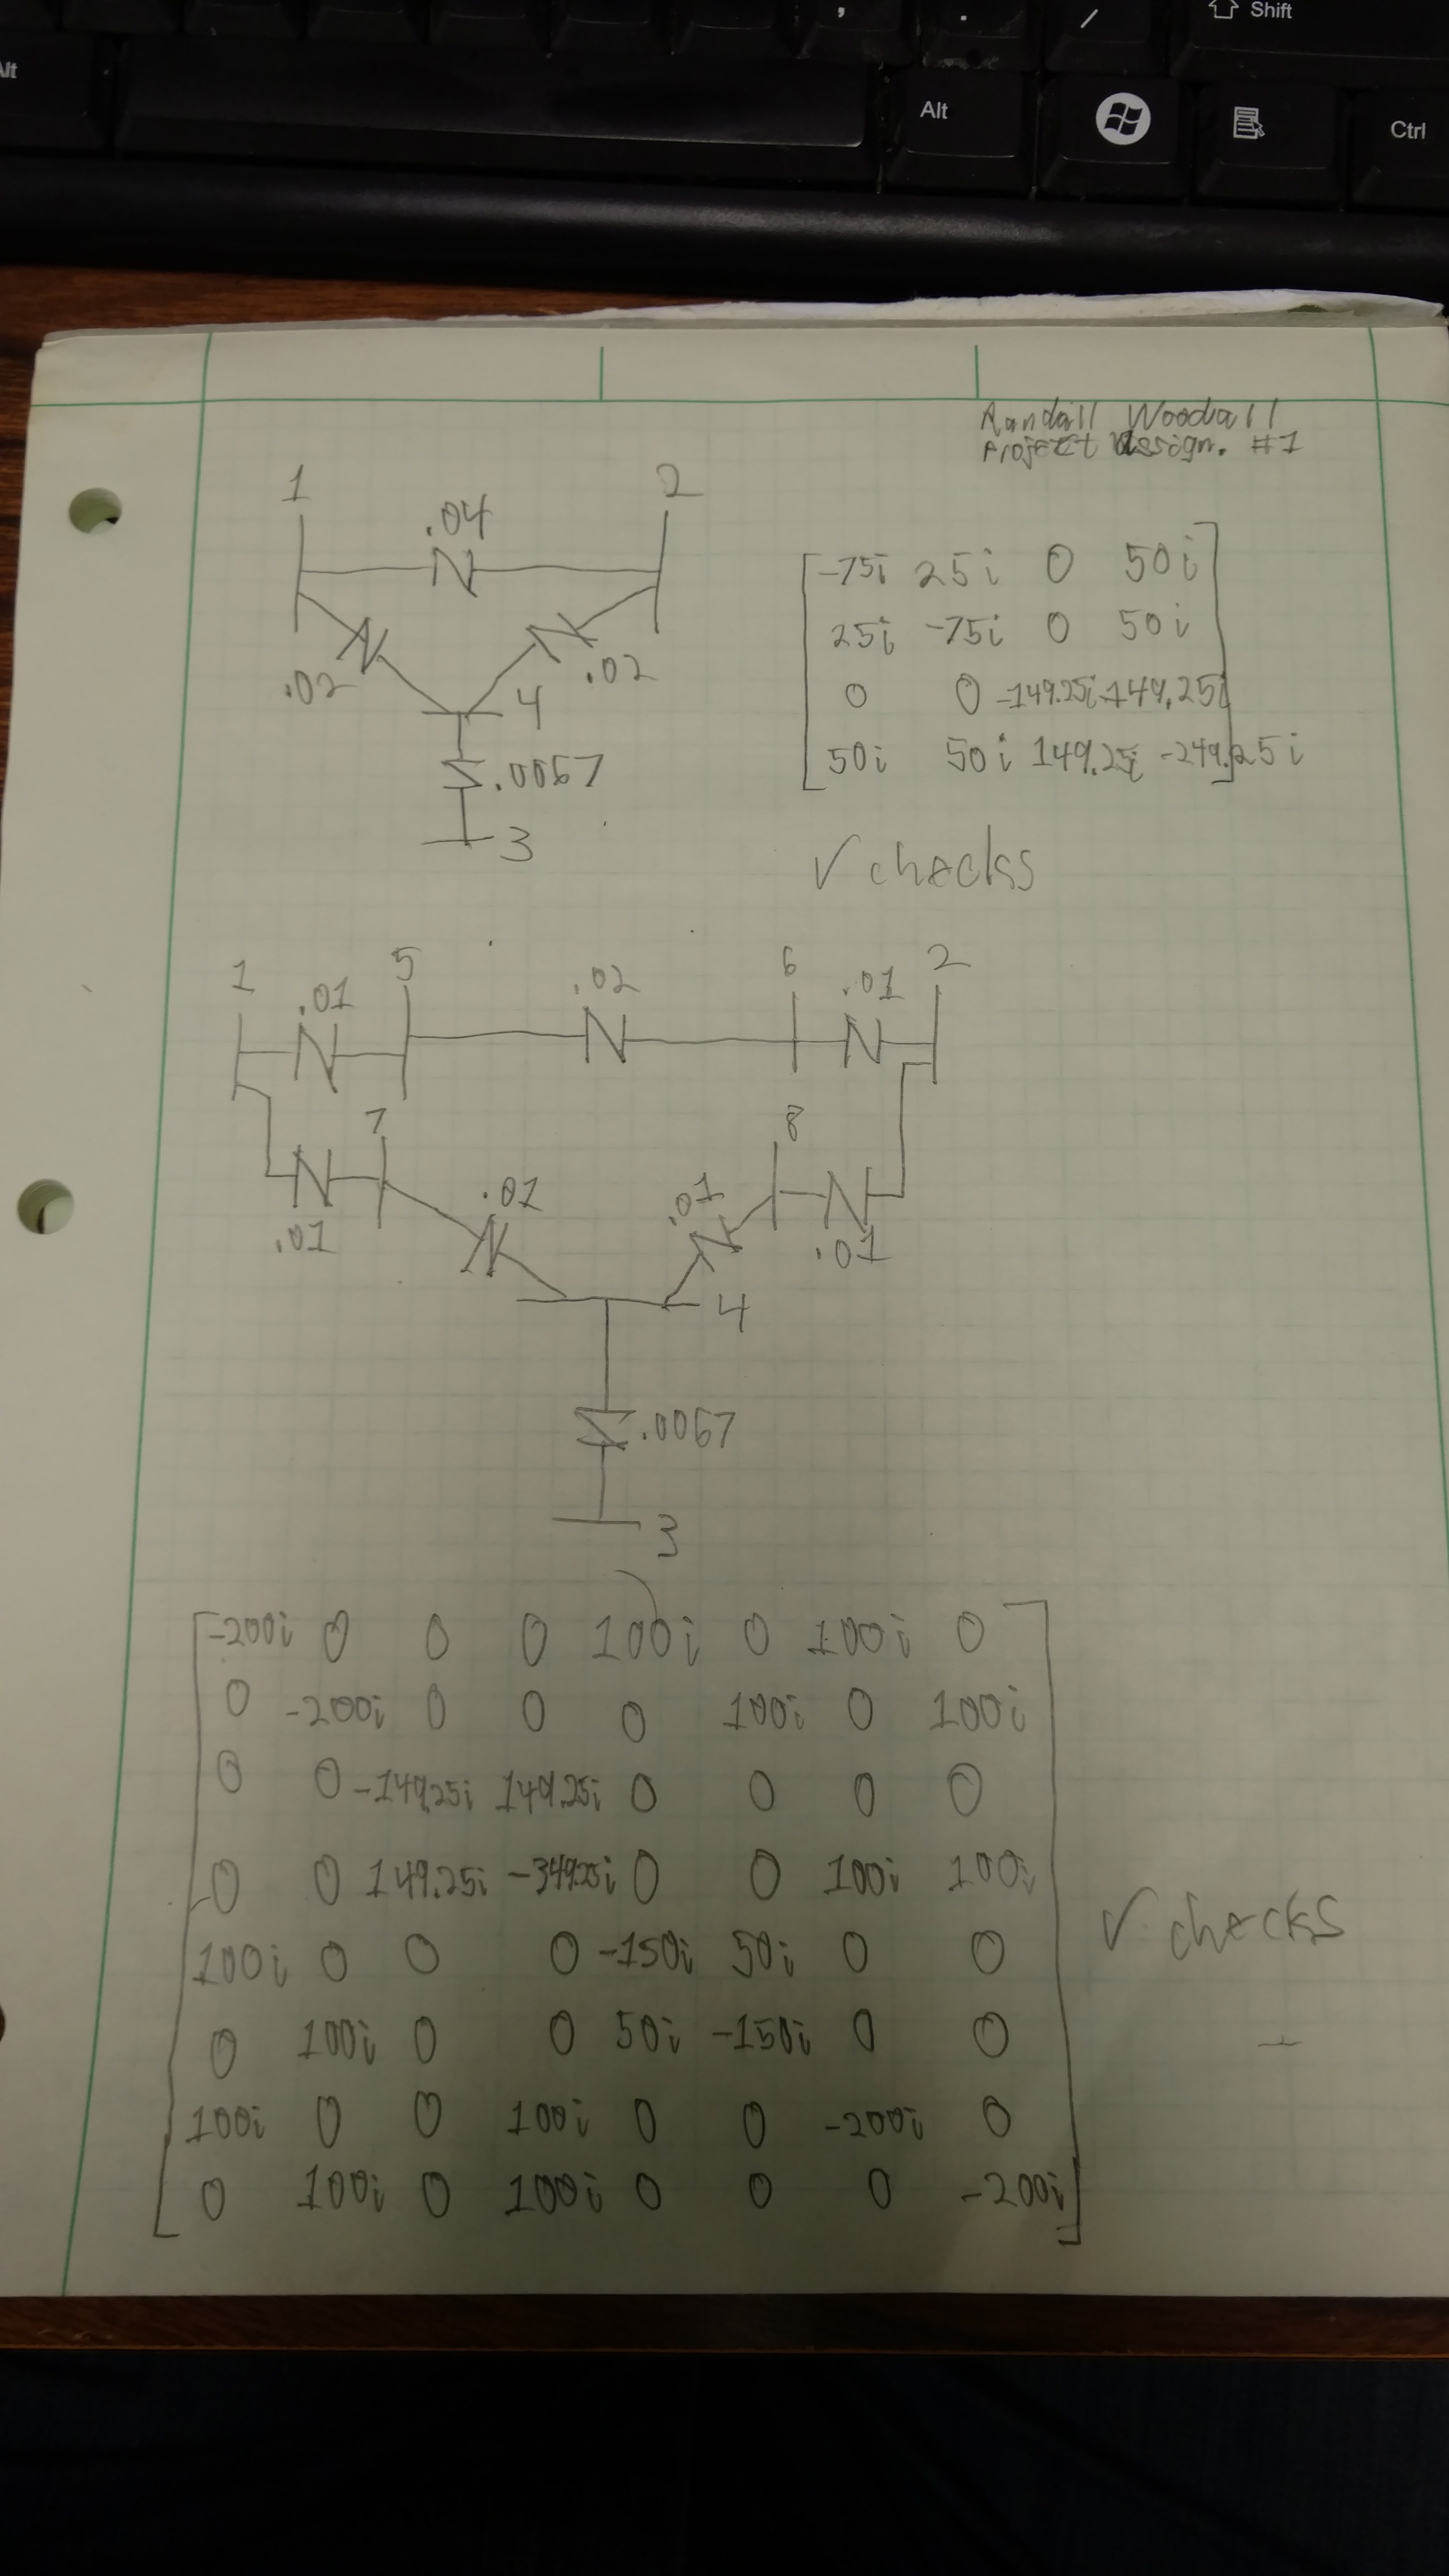 , . / Shift
Alt Alt Ctrl
Randall Woodall
Project Assign. #1
1 2
.04
.02 .02
4
.0067
3
-75i 25i 0 50i
25i -75i 0 50i
0 0 -149.25i 149.25i
50i 50i 149.25i -249.25i
√ checks
1 5 6 2
.01 .02 .01
7 8
.01 .01
.01 .01
4
.0067
3
-200i 0 0 0 100i 0 100i 0
0 -200i 0 0 0 100i 0 100i
0 0 -149.25i 149.25i 0 0 0 0
0 0 149.25i -349.25i 0 0 100i 100i
100i 0 0 0 -150i 50i 0 0
√ checks
0 100i 0 0 50i -150i 0 0
100i 0 0 100i 0 0 -200i 0
0 100i 0 100i 0 0 0 -200i